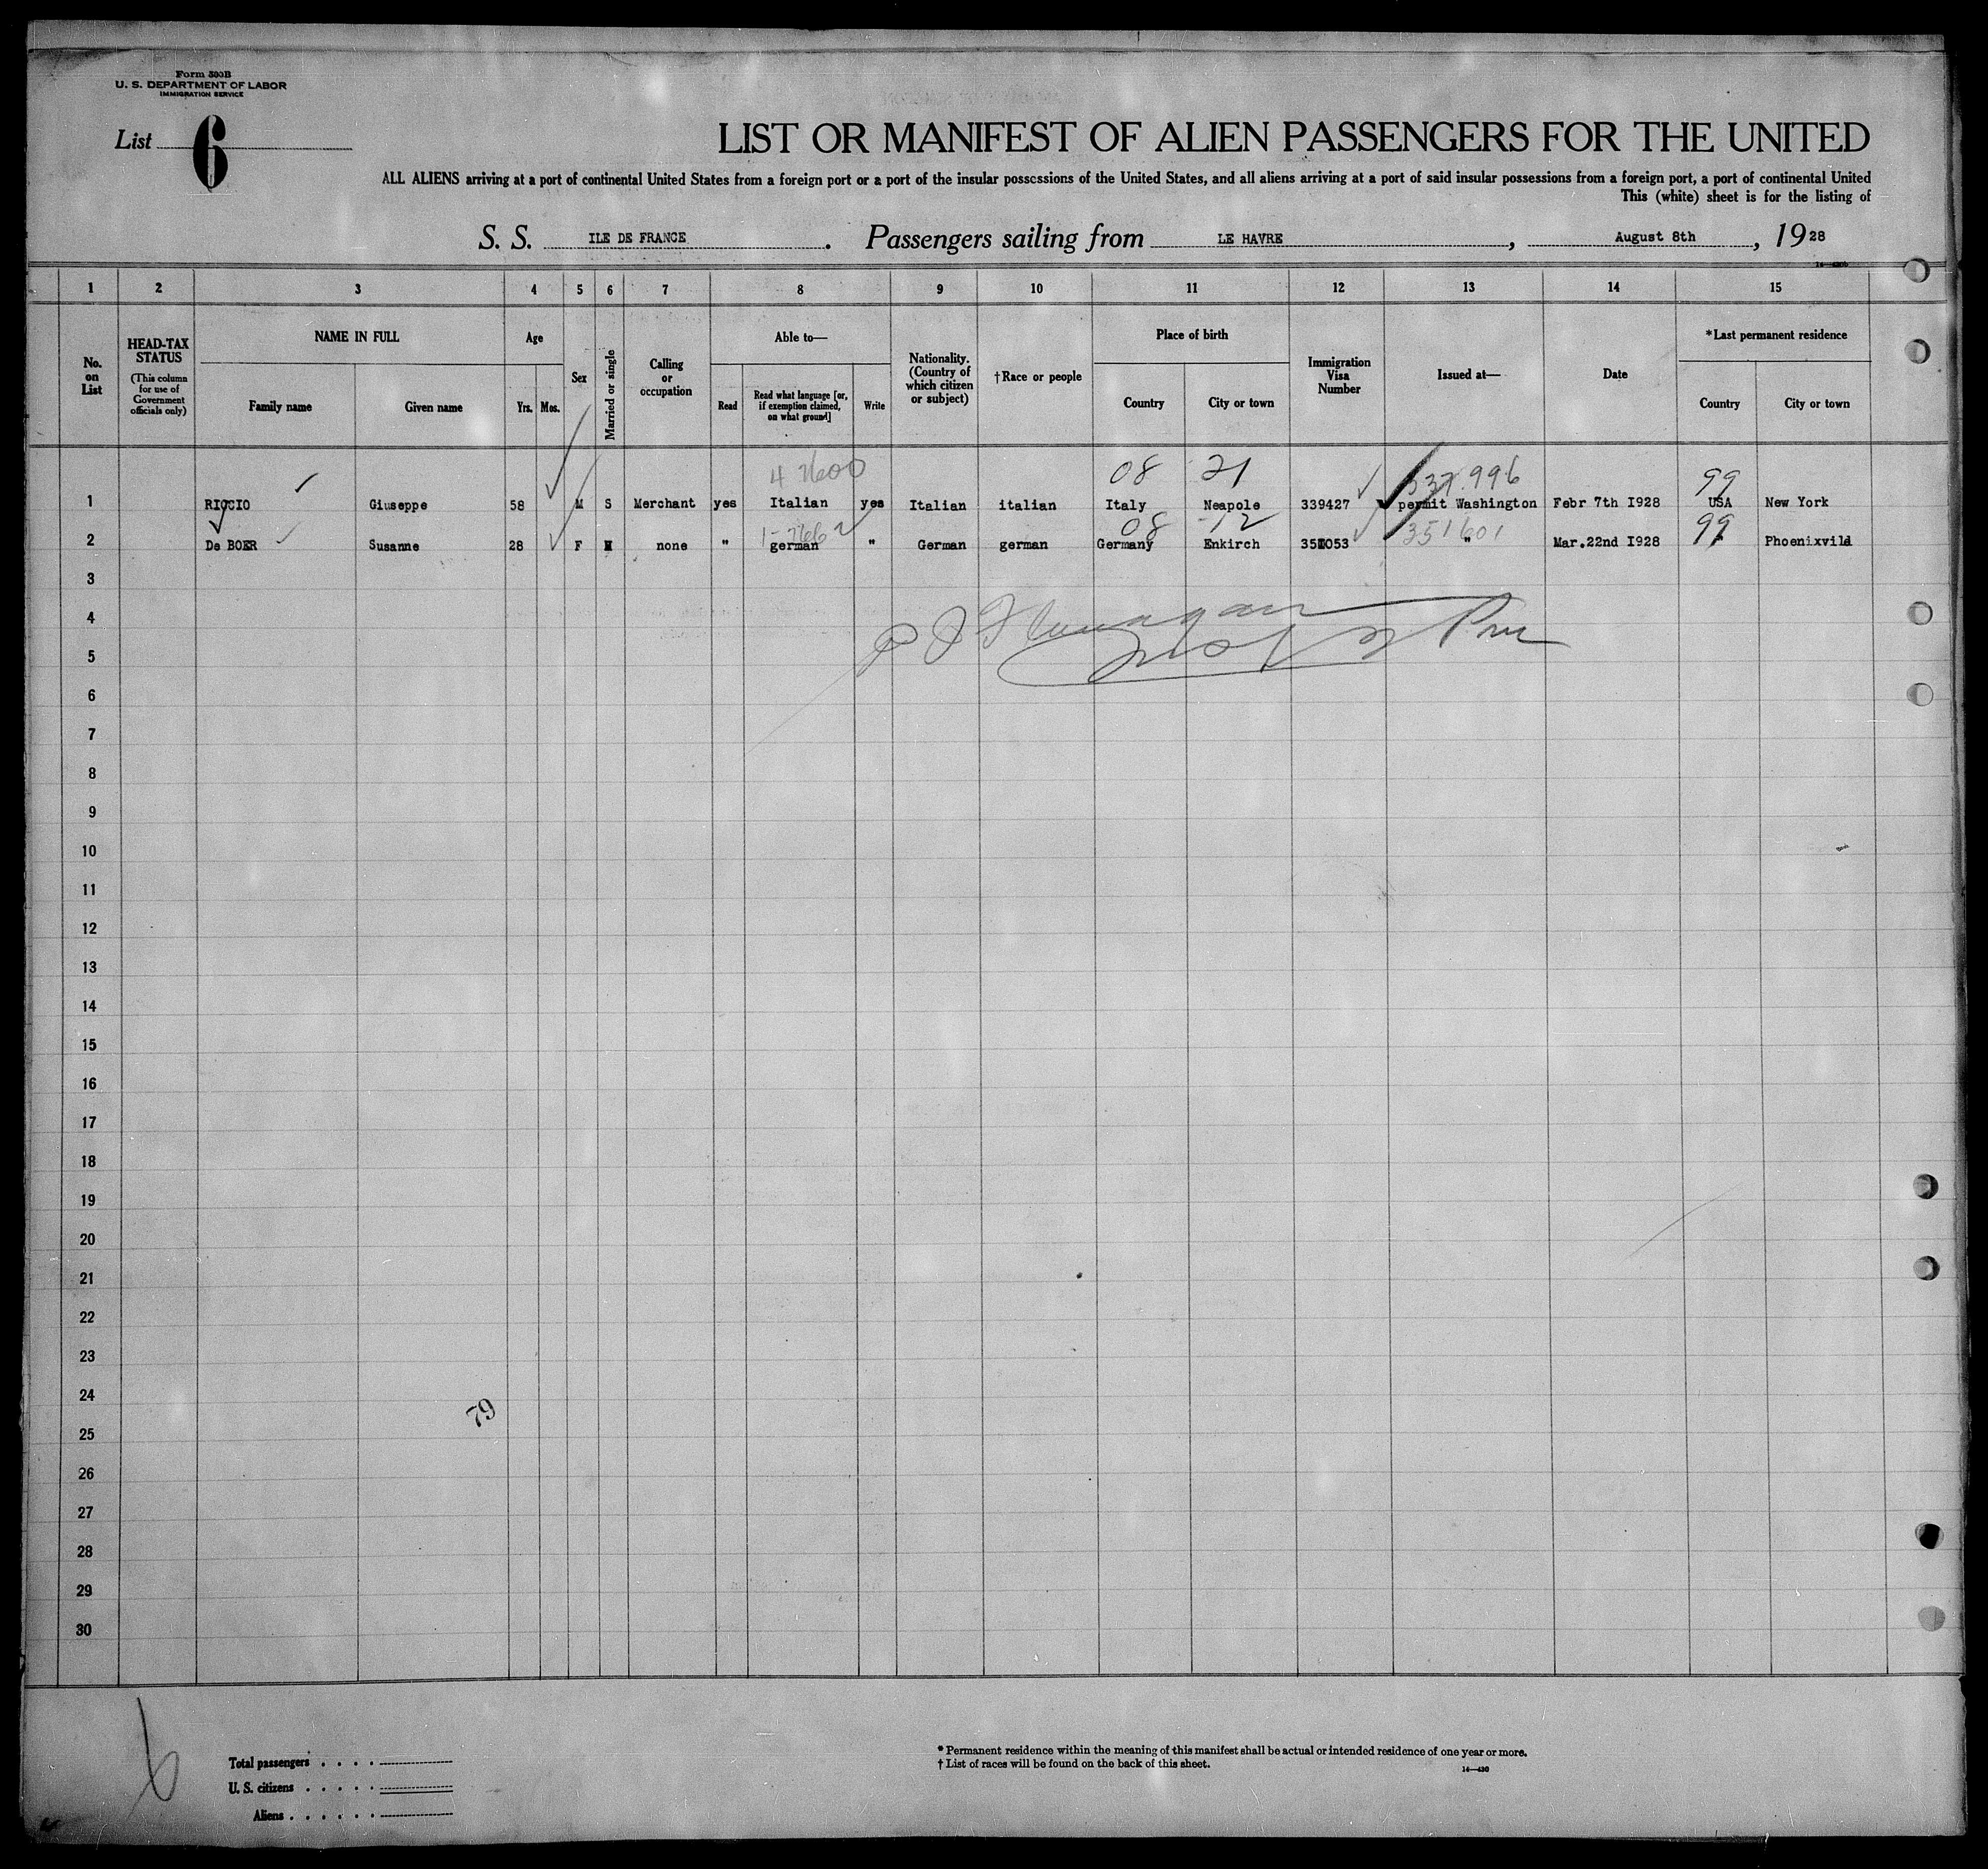 Form 500B
U. S. DEPARTMENT OF LABOR
IMMIGRATION SERVICE
List 6
LIST OR MANIFEST OF ALIEN PASSENGERS FOR THE UNITED
ALL ALIENS arriving at a port of continental United States from a foreign port or a port of the insular possessions of the United States, and all aliens arriving at a port of said insular possessions from a foreign port, a port of continental United
This (white) sheet is for the listing of
S. S. ILE DE FRANCE. Passengers sailing from LE HAVRE, August 8th, 1928
1 2 3 4 5 6 7 8 9 10 11 12 13 14 15
No. on List
HEAD-TAX STATUS (This column for use of Government officials only)
NAME IN FULL
Family name Given name
Age
Yrs. Mos.
Sex
Married or single
Calling or occupation
Able to—
Read
Read what language [or, if exemption claimed, on what ground]
Write
Nationality. (Country of which citizen or subject)
†Race or people
Place of birth
Country City or town
Immigration Visa Number
Issued at—
Date
*Last permanent residence
Country City or town
08 21 99
1 RICCIO Giuseppe 58 M S Merchant yes Italian yes Italian italian Italy Neapole 339427 permit Washington Febr 7th I928 USA New York
08 12 351601 99
2 De BOER Susanne 28 F none " german " German german Germany Enkirch " Mar.22nd I928 Phoenixvill
3
4
5
6
7
8
9
10
11
12
13
14
15
16
17
18
19
20
21
22
23
24
79
25
26
27
28
29
30
6
Total passengers . . . .
U. S. citizens . . . . .
Aliens . . . . . .
* Permanent residence within the meaning of this manifest shall be actual or intended residence of one year or more.
† List of races will be found on the back of this sheet.
14—430